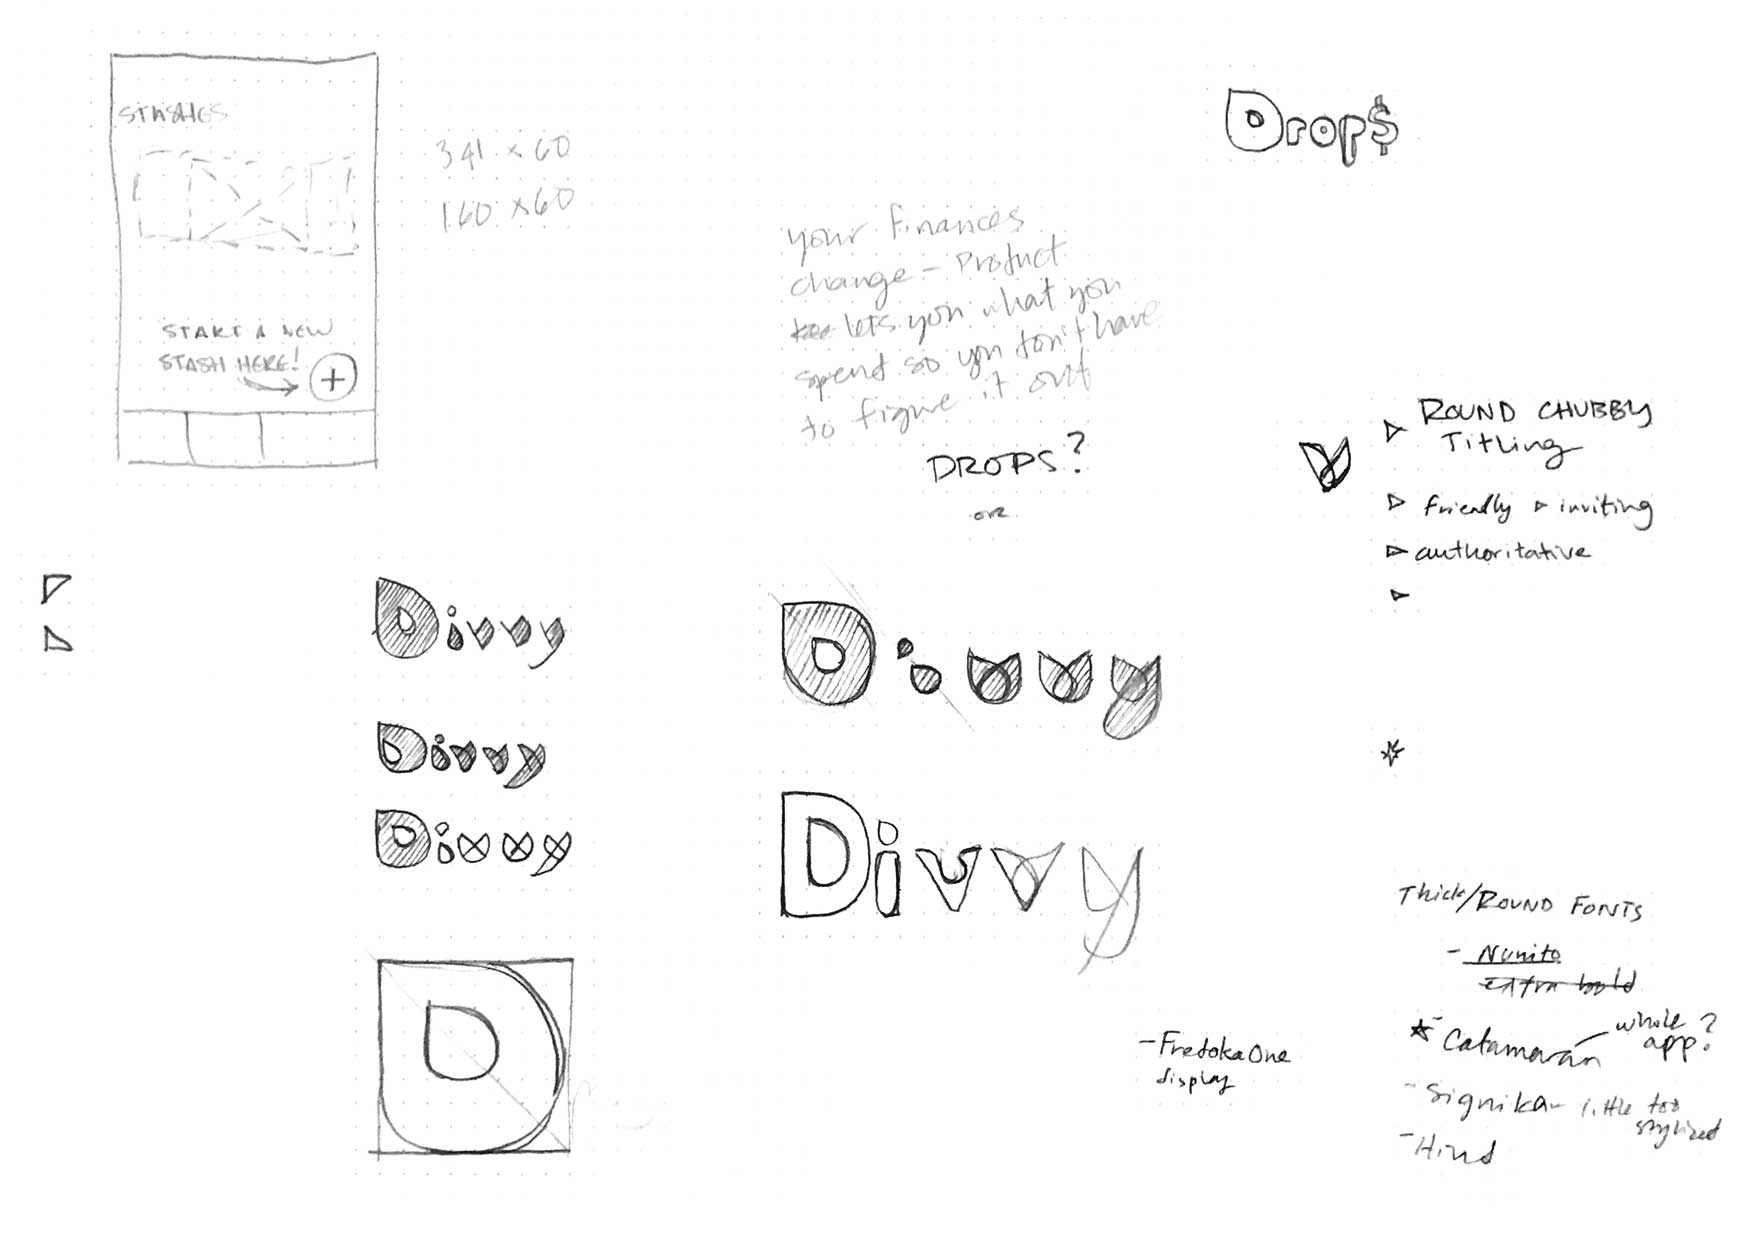 STASHES
START A NEW
STASH HERE!
341 x 60
160 x 60
Drop$
your finances
change – Product
lets you what you
spend so you don't have
to figure it out
DROPS?
or
ROUND CHUBBY
Titling
friendly ▹ inviting
authoritative
Divvy
Divvy
Divvy
D
Divvy
Divvy
- Fredoka One
display
Thick/ROUND FONTS
- Nunito
extra bold
- Catamaran
whole
app?
- Signika – little too
stylized
- Hind